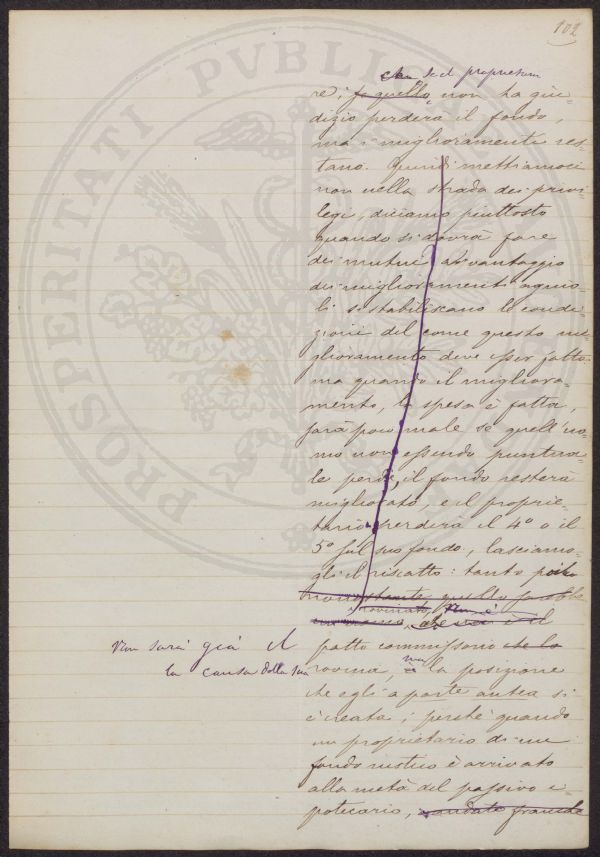 102
se il proprietario
re; se quello, non ha giu-
dizio perderà il fondo,
ma i miglioramenti res-
tano. Quindi mettiamoci
non nella strada dei privi-
legi, diciamo piuttosto
quando si dovrà fare
dei mutui a vantaggio
dei miglioramenti agrico-
li si stabiliscano le condi-
zioni del come questo mi-
glioramento deve esser fatto
ma quando il migliora-
mento, la spesa è fatta,
sarà poco male se quell'uo-
mo non essendo puntua-
le perde, il fondo resterà
migliorato, e il proprie-
tario perderà il 4º o il
5º sul suo fondo, lasciamo-
gli il riscatto: tanto
nonostante quello
rovinato, non è
che il
Non sarà già il
patto commissorio che lo
la causa della sua
rovina, ma la posizione
che egli a parte antea si
è creata; perchè quando
un proprietario di un
fondo rustico è arrivato
alla metà del passivo i-
potecario, andate
PROSPERITATI PVBLICAE